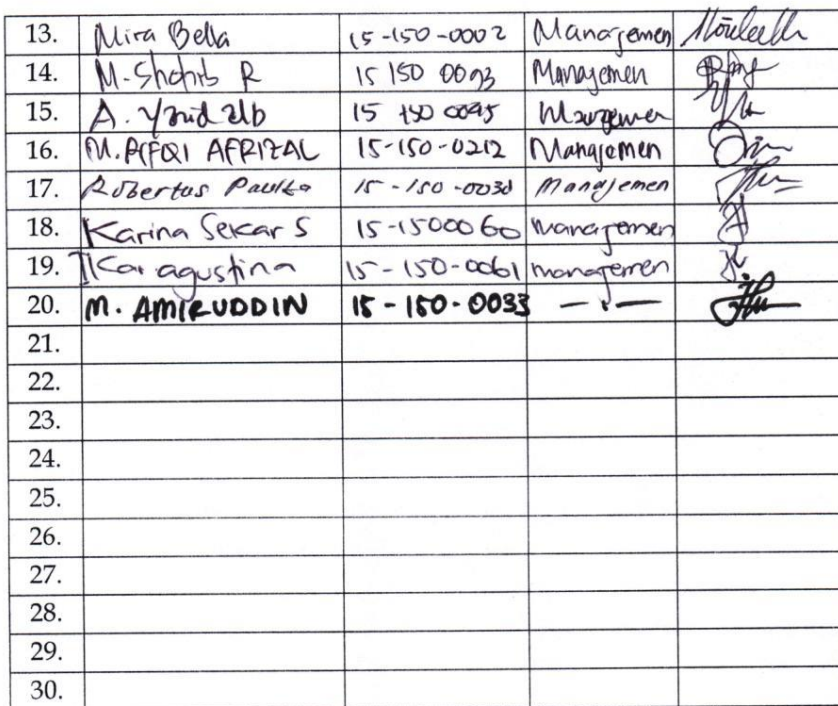 13. Mira Bella 15-150-0002 Manajemen
14. M. Shohib R 15 150 0093 Manajemen
15. A. 15 150 0095 Manajemen
16. M. RIFQI AFRIZAL 15-150-0212 Manajemen
17. Robertus 15-150-0030 Manajemen
18. Karina Sekar S 15-1500060 manajemen
19. Ika agustina 15-150-0061 manajemen
20. M. AMIRUDDIN 15-150-0033 -.-
21.
22.
23.
24.
25.
26.
27.
28.
29.
30.